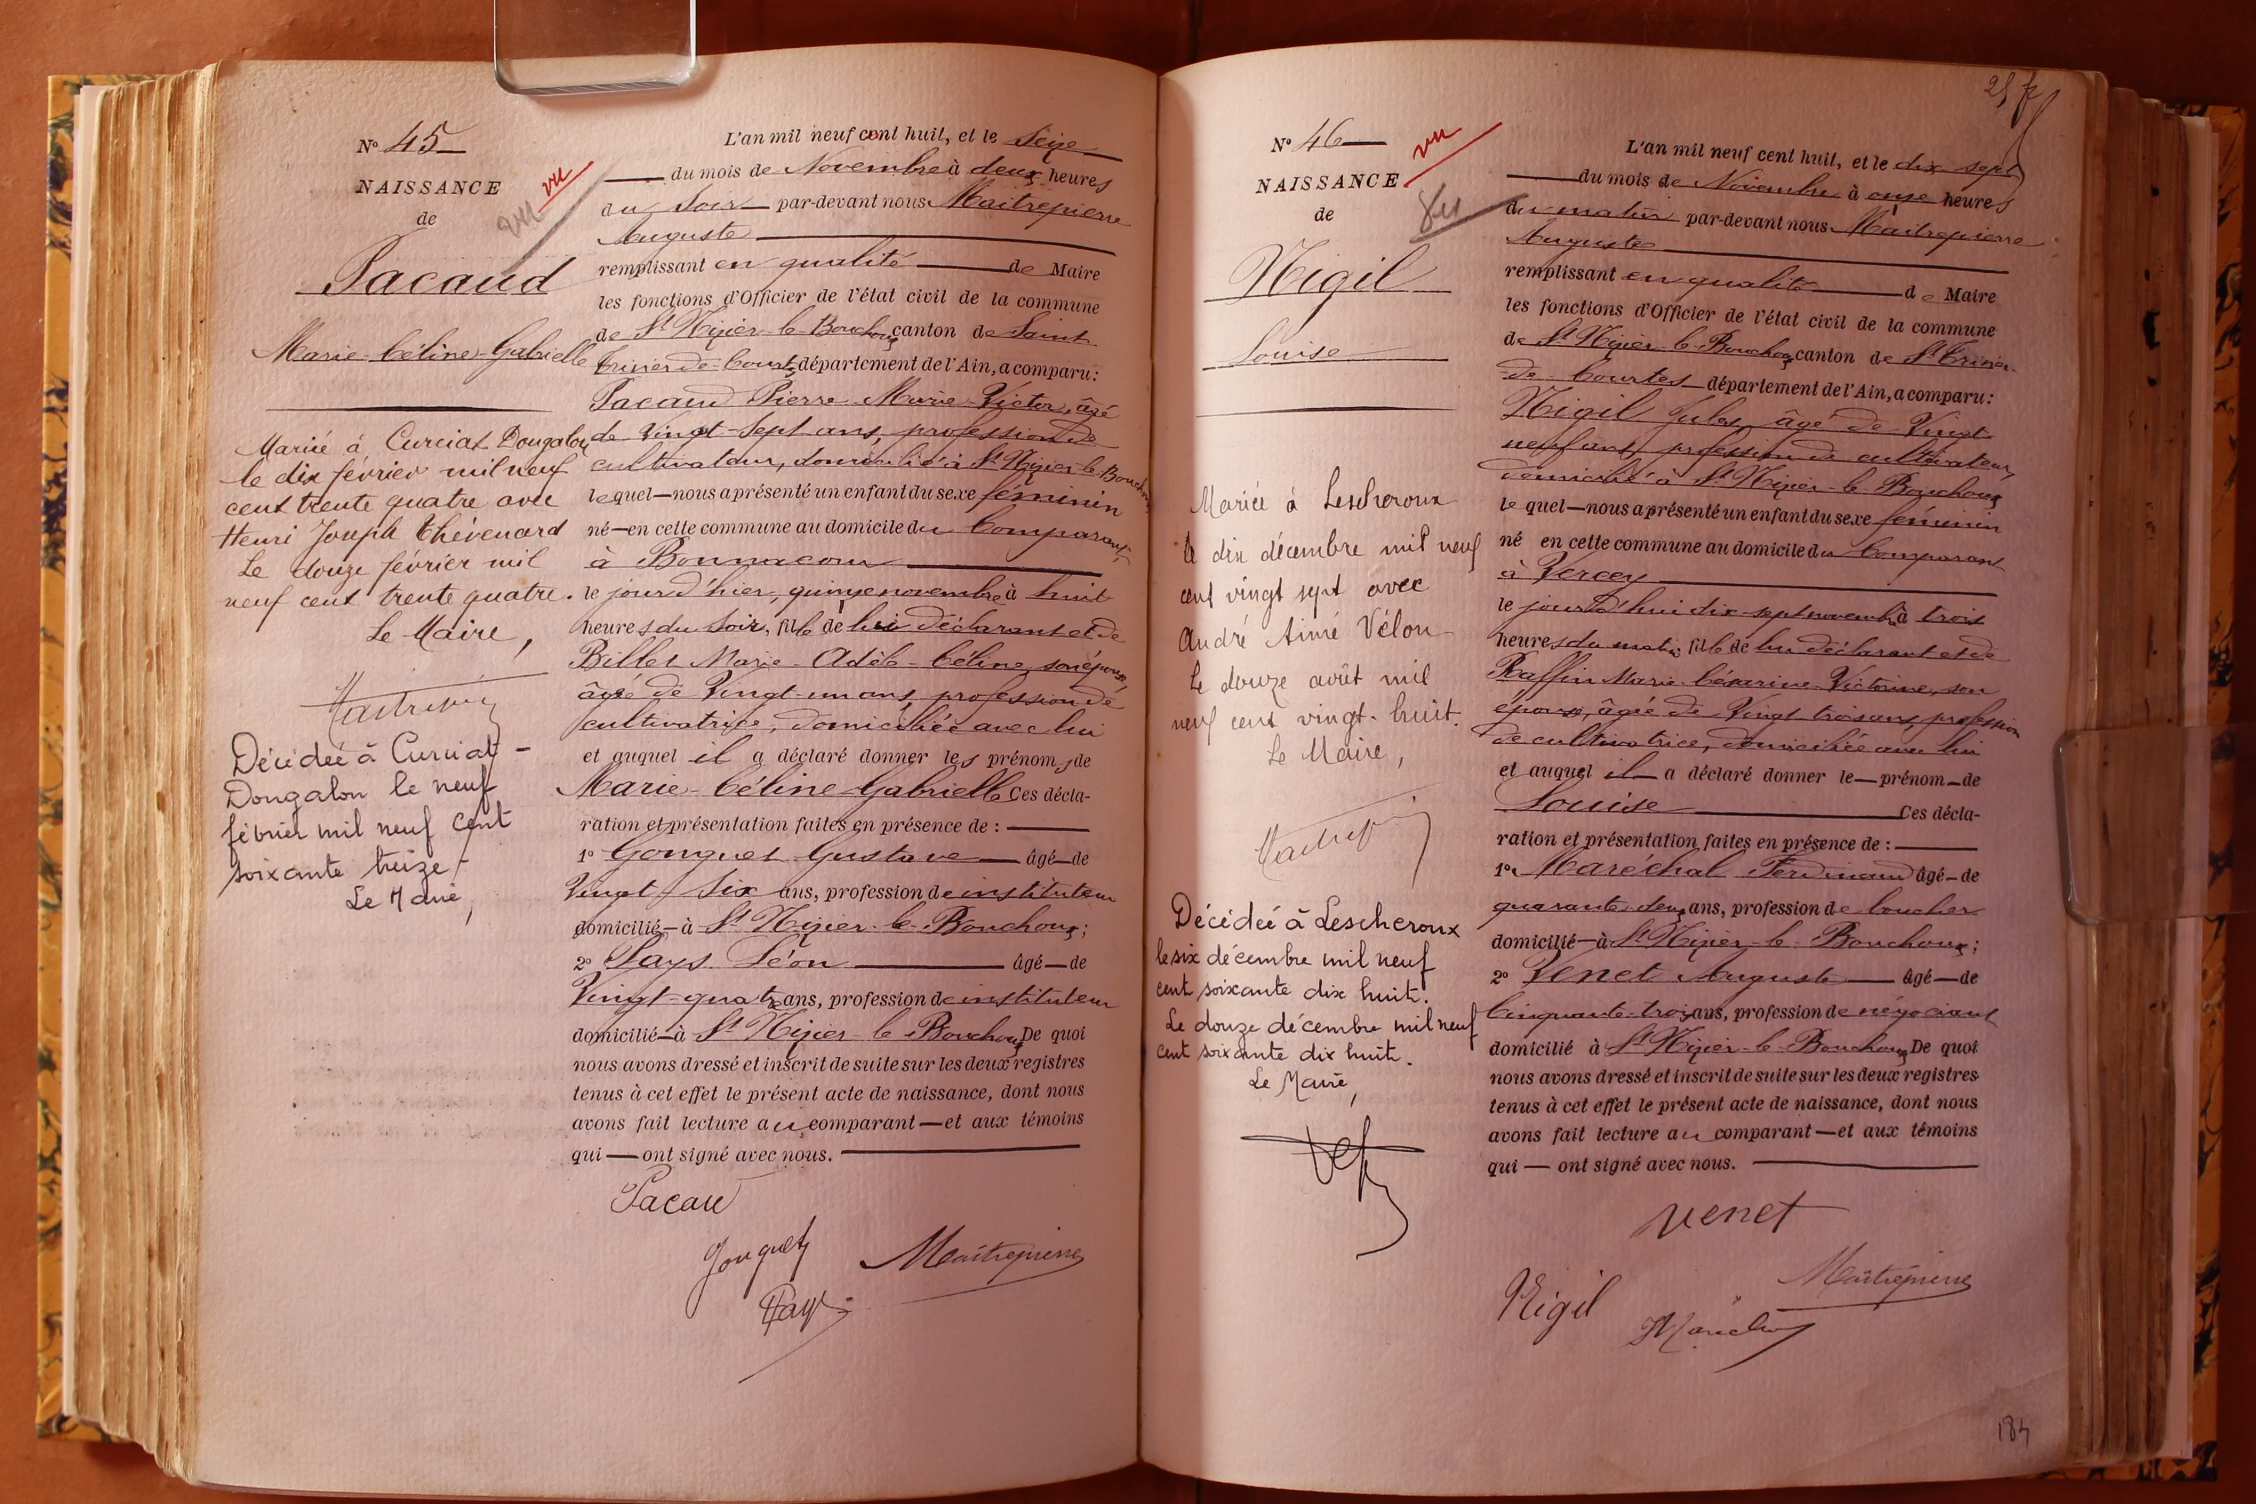 N° 45
NAISSANCE
de
vu
vu
Pacaud
Marie-Céline-Gabrielle
Mariée à Curciat Dongalon
le dix février mil neuf
cent trente quatre avec
Henri Joseph Thévenard
Le douze février mil
neuf cent trente quatre.
Le Maire,
Décédée à Curciat-
Dongalon le neuf
février mil neuf cent
soixante treize
Le Maire,
L'an mil neuf cent huit, et le Seize
du mois de Novembre à deux heures
du Soir par-devant nous Maitrepierre
Auguste
remplissant en qualité de Maire
les fonctions d'Officier de l'état civil de la commune
de St Nizier-le-Bouchoux canton de Saint
Trivier-de-Courtes département de l'Ain, a comparu:
Pacaud Pierre-Marie-Victor, âgé
de Vingt-Sept ans, profession de
cultivateur, domicilié à St Nizier-le-Bouchoux
lequel—nous a présenté un enfant du sexe féminin
né—en cette commune au domicile du Comparant,
à Bonnacour
le jour d'hier, quinze novembre à huit
heures du Soir, fille de lui déclarant et de
Billet Marie-Adèle-Céline, son épouse,
âgée de Vingt-un ans, profession de
cultivatrice, domiciliée avec lui
et auquel il a déclaré donner les prénoms de
Marie-Céline-Gabrielle Ces décla-
ration et présentation faites en présence de :
1° Gonguet Gustave âgé—de
Vingt-Six ans, profession de instituteur
domicilié—à St Nizier-le-Bouchoux;
2° Pays Léon âgé—de
Vingt-quatre ans, profession de instituteur
domicilié—à St Nizier-le-Bouchoux De quoi
nous avons dressé et inscrit de suite sur les deux registres
tenus à cet effet le présent acte de naissance, dont nous
avons fait lecture au comparant—et aux témoins
qui — ont signé avec nous.
Pacaud
Gonguet
Maitrepierre
Pays
N° 46
NAISSANCE
de
vu
vu
Nigil
Louise
Mariée à Lescheroux
le dix décembre mil neuf
cent vingt sept avec
André Aimé Vélon
Le douze août mil
neuf cent vingt-huit.
Le Maire,
Décédée à Lescheroux
le six décembre mil neuf
cent soixante dix huit.
Le douze décembre mil neuf
cent soixante dix huit.
Le Maire,
L'an mil neuf cent huit, et le dix sept
du mois de Novembre à onze heures
du matin par-devant nous Maitrepierre
Auguste
remplissant en qualité de Maire
les fonctions d'Officier de l'état civil de la commune
de St Nizier-le-Bouchoux canton de St Trivier-
de-Courtes département de l'Ain, a comparu:
Nigil Jules, âgé de Vingt
neuf ans, profession de cultivateur,
domicilié à St Nizier-le-Bouchoux
le quel—nous a présenté un enfant du sexe féminin
né en cette commune au domicile du Comparant
à Vercey
le jour d'hui dix-sept novembre à trois
heures du matin fille de lui déclarant et de
Raffin Marie-Césarine-Victorine, son
épouse, âgée de Vingt-trois ans, profession
de cultivatrice, domiciliée avec lui
et auquel il a déclaré donner le—prénom—de
Louise Ces décla-
ration et présentation faites en présence de :
1° Maréchal Ferdinand âgé—de
quarante-deux ans, profession de boucher
domicilié—à St Nizier-le-Bouchoux;
2° Venet Auguste âgé—de
Cinquante-trois ans, profession de négociant
domicilié à St Nizier-le-Bouchoux De quoi
nous avons dressé et inscrit de suite sur les deux registres
tenus à cet effet le présent acte de naissance, dont nous
avons fait lecture au comparant—et aux témoins
qui — ont signé avec nous.
Venet
Maitrepierre
Nigil
184